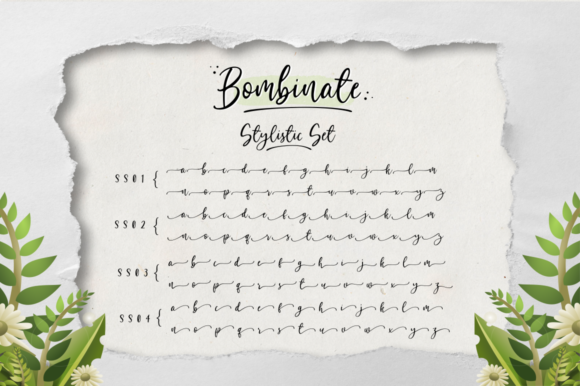 Bombinate
Stylistic Set
SS01 { a b c d e f g h i j k l m
n o p q r s t u v w x y z
SS02 { a b c d e f g h i j k l m
n o p q r s t u v w x y z
SS03 { a b c d e f g h i j k l m
n o p q r s t u v w x y z
SS04 { a b c d e f g h i j k l m
n o p q r s t u v w x y z